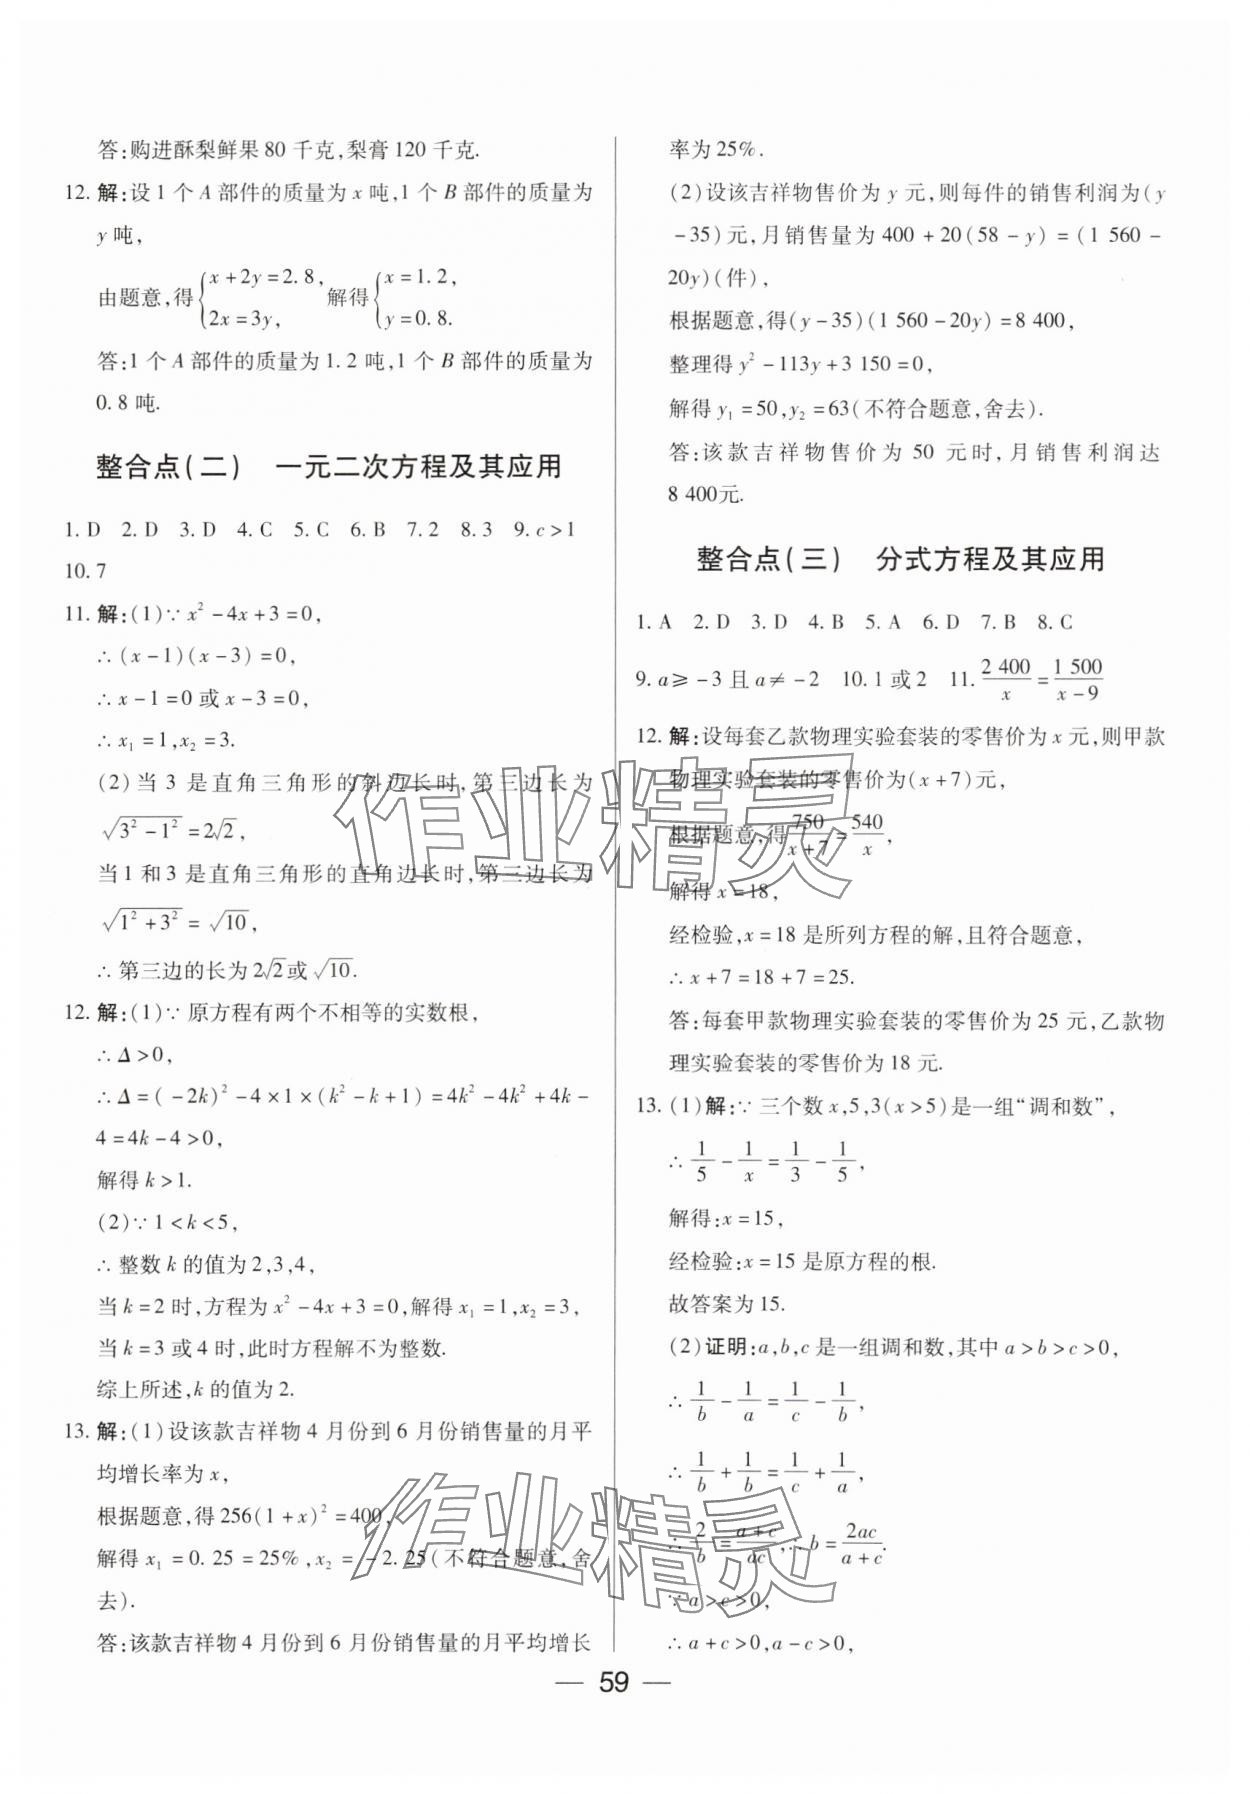 答:购进酥梨鲜果80千克,梨膏120千克.
12. 解:设1个A部件的质量为x吨,1个B部件的质量为
y吨,
由题意,得{x+2y=2.8, 2x=3y, 解得{x=1.2, y=0.8.
答:1个A部件的质量为1.2吨,1个B部件的质量为
0.8吨.
整合点(二) 一元二次方程及其应用
1. D 2. D 3. D 4. C 5. C 6. B 7. 2 8. 3 9. c>1
10. 7
11. 解:(1)∵x²-4x+3=0,
∴(x-1)(x-3)=0,
∴x-1=0或x-3=0,
∴x₁=1,x₂=3.
(2)当3是直角三角形的斜边长时,第三边长为
√(3²-1²)=2√2,
当1和3是直角三角形的直角边长时,第三边长为
√(1²+3²)=√10,
∴第三边的长为2√2或√10.
12. 解:(1)∵原方程有两个不相等的实数根,
∴Δ>0,
∴Δ=(-2k)²-4×1×(k²-k+1)=4k²-4k²+4k-
4=4k-4>0,
解得k>1.
(2)∵1<k<5,
∴整数k的值为2,3,4,
当k=2时,方程为x²-4x+3=0,解得x₁=1,x₂=3,
当k=3或4时,此时方程解不为整数.
综上所述,k的值为2.
13. 解:(1)设该款吉祥物4月份到6月份销售量的月平
均增长率为x,
根据题意,得256(1+x)²=400,
解得x₁=0.25=25%,x₂=-2.25(不符合题意,舍
去).
答:该款吉祥物4月份到6月份销售量的月平均增长
率为25%.
(2)设该吉祥物售价为y元,则每件的销售利润为(y
-35)元,月销售量为400+20(58-y)=(1 560-
20y)(件),
根据题意,得(y-35)(1 560-20y)=8 400,
整理得y²-113y+3 150=0,
解得y₁=50,y₂=63(不符合题意,舍去).
答:该款吉祥物售价为50元时,月销售利润达
8 400元.
整合点(三) 分式方程及其应用
1. A 2. D 3. D 4. B 5. A 6. D 7. B 8. C
9. a≥-3且a≠-2 10. 1或2 11. 2 400/x=1 500/(x-9)
12. 解:设每套乙款物理实验套装的零售价为x元,则甲款
物理实验套装的零售价为(x+7)元,
根据题意,得750/(x+7)=540/x,
解得x=18,
经检验,x=18是所列方程的解,且符合题意,
∴x+7=18+7=25.
答:每套甲款物理实验套装的零售价为25元,乙款物
理实验套装的零售价为18元.
13. (1)解:∵三个数x,5,3(x>5)是一组“调和数”,
∴1/5-1/x=1/3-1/5,
解得:x=15,
经检验:x=15是原方程的根.
故答案为15.
(2)证明:a,b,c是一组调和数,其中a>b>c>0,
∴1/b-1/a=1/c-1/b,
∴1/b+1/b=1/c+1/a,
∴2/b=(a+c)/ac,∴b=2ac/(a+c).
∵a>c>0,
∴a+c>0,a-c>0,
— 59 —
作业精灵
作业精灵